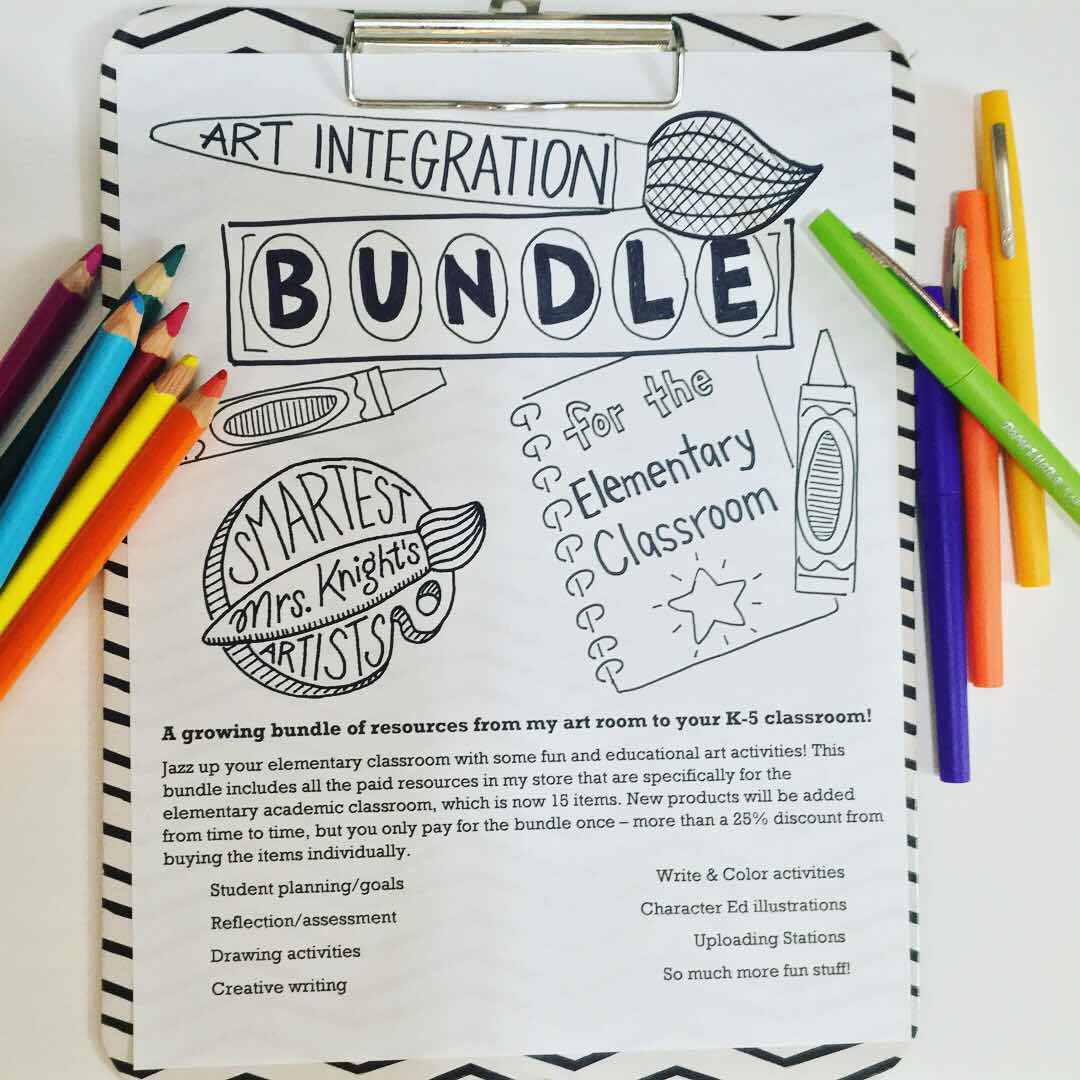 ART INTEGRATION
BUNDLE
for the
Elementary
Classroom
SMARTEST
Mrs. Knight's
ARTISTS
A growing bundle of resources from my art room to your K-5 classroom!
Jazz up your elementary classroom with some fun and educational art activities! This
bundle includes all the paid resources in my store that are specifically for the
elementary academic classroom, which is now 15 items. New products will be added
from time to time, but you only pay for the bundle once – more than a 25% discount from
buying the items individually.
Student planning/goals
Reflection/assessment
Drawing activities
Creative writing
Write & Color activities
Character Ed illustrations
Uploading Stations
So much more fun stuff!